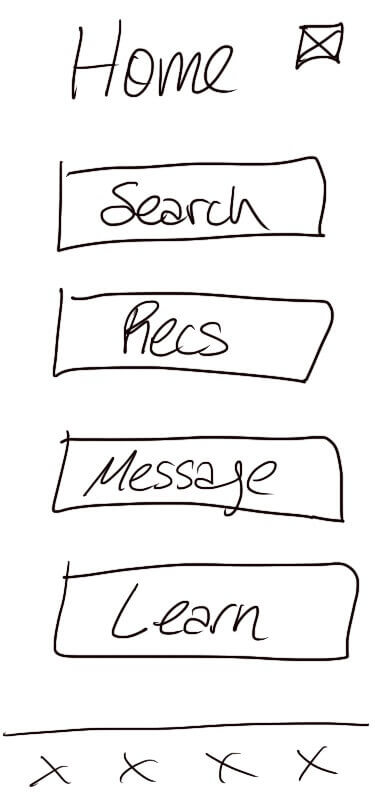 Home
Search
Recs
Message
Learn